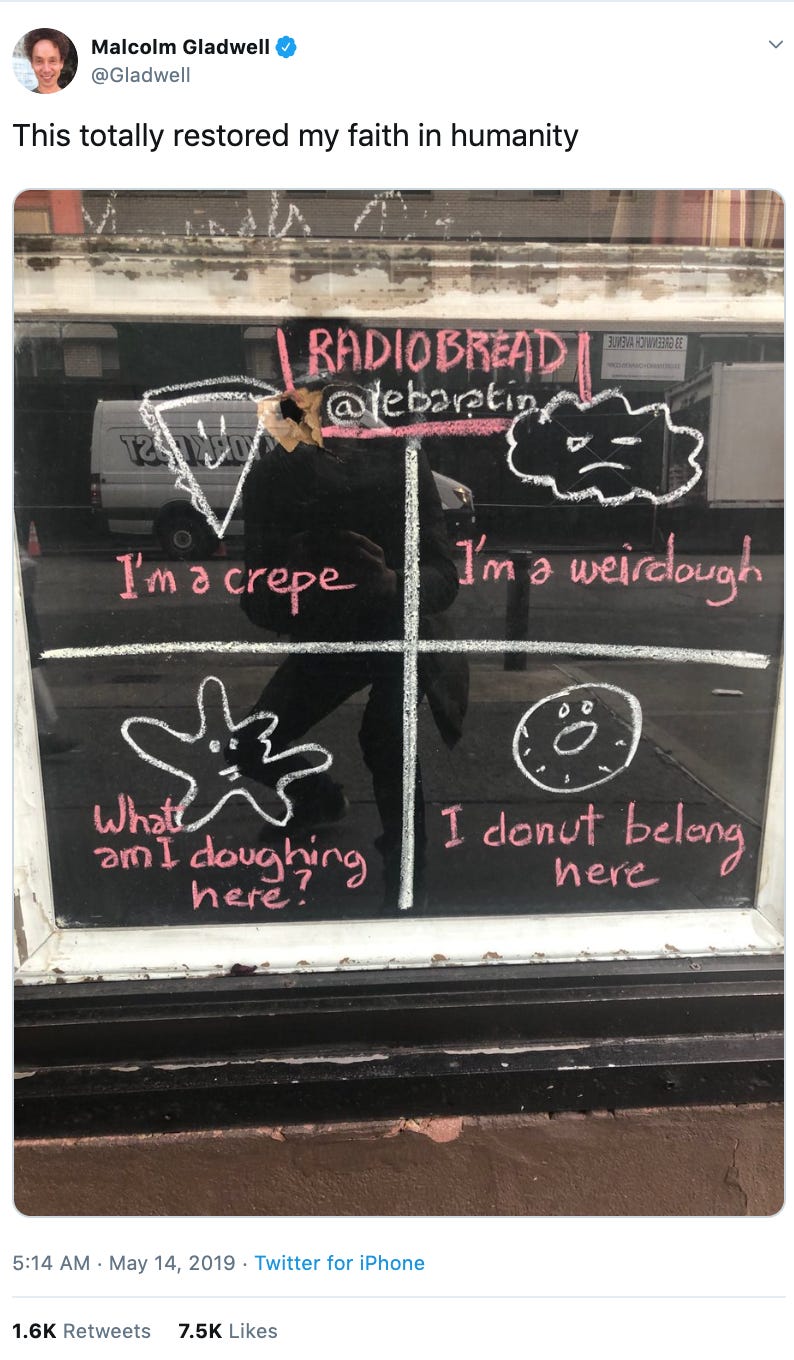 Malcolm Gladwell
@Gladwell
This totally restored my faith in humanity
RADIOBREAD
33 GREENWICH AVENUE
@lebarstin
I'm a crepe
I'm a weirdough
What
am I doughing
here?
I donut belong
here
5:14 AM · May 14, 2019 · Twitter for iPhone
1.6K Retweets 7.5K Likes